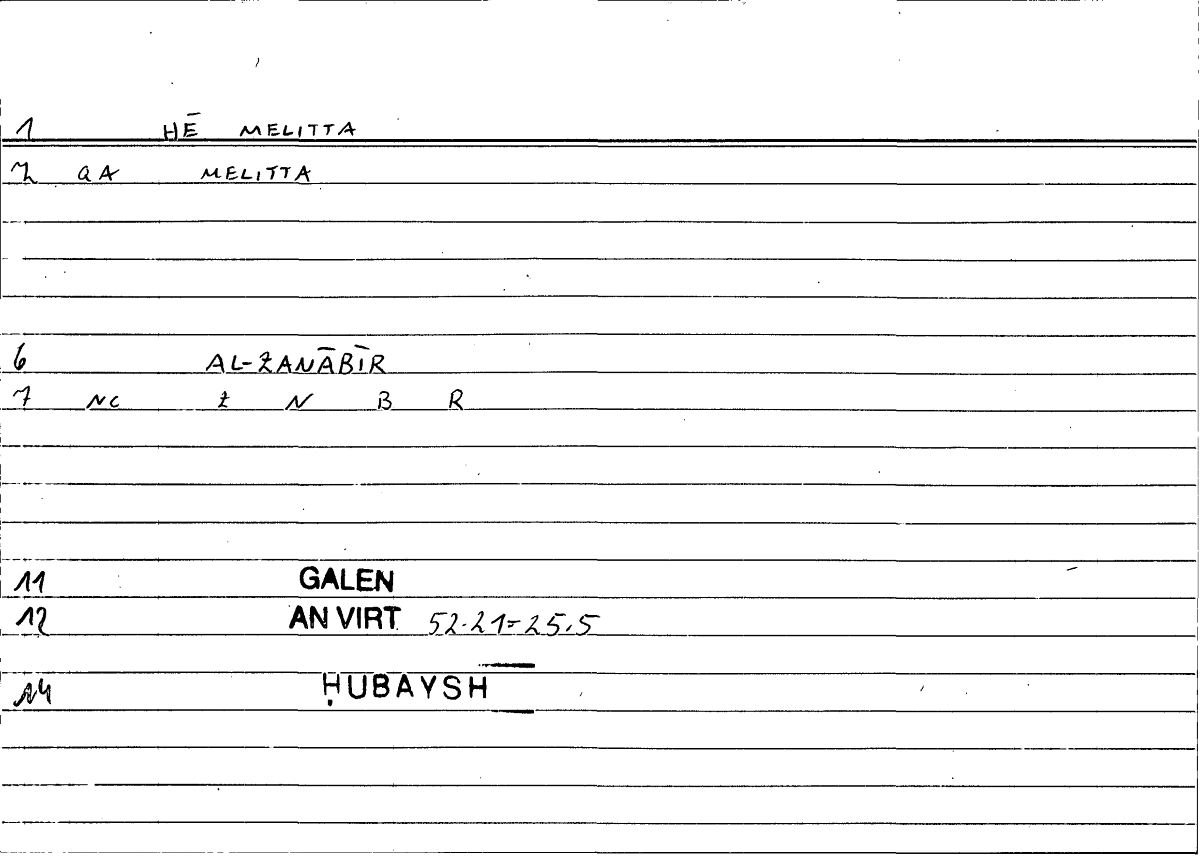 1 HĒ MELITTA
2 QA MELITTA
6 AL-ZANĀBĪR
7 NC Z N B R
11 GALEN
12 AN VIRT 52.21=25.5
14 ḤUBAYSH